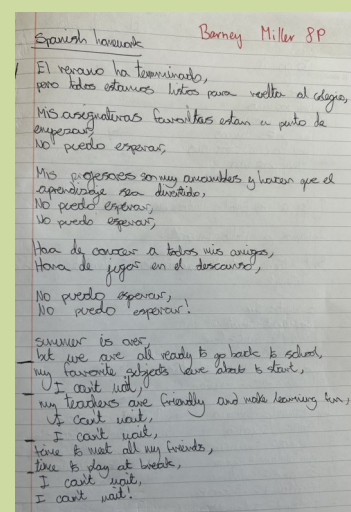 Spanish homework
Barney Miller 8P
El verano ha terminado,
pero todos estamos listos para vuelta al colegio,
Mis asignaturas favoritas estan a punto de
empezar,
No puedo esperar,
Mis profesores son muy amambles y hacen que el
aprendizaje sea divertido,
No puedo esperar,
No puedo esperar,
Hora de conocer a todos mis amigos,
Hora de jugar en el descanso,
No puedo esperar,
No puedo esperar!
summer is over,
but we are all ready to go back to school,
my favorite subjects have about to start,
I can't wait,
my teachers are friendly and make learning fun,
I can't wait,
I can't wait,
time to meet all my friends,
time to play at break,
I can't wait,
I can't wait!